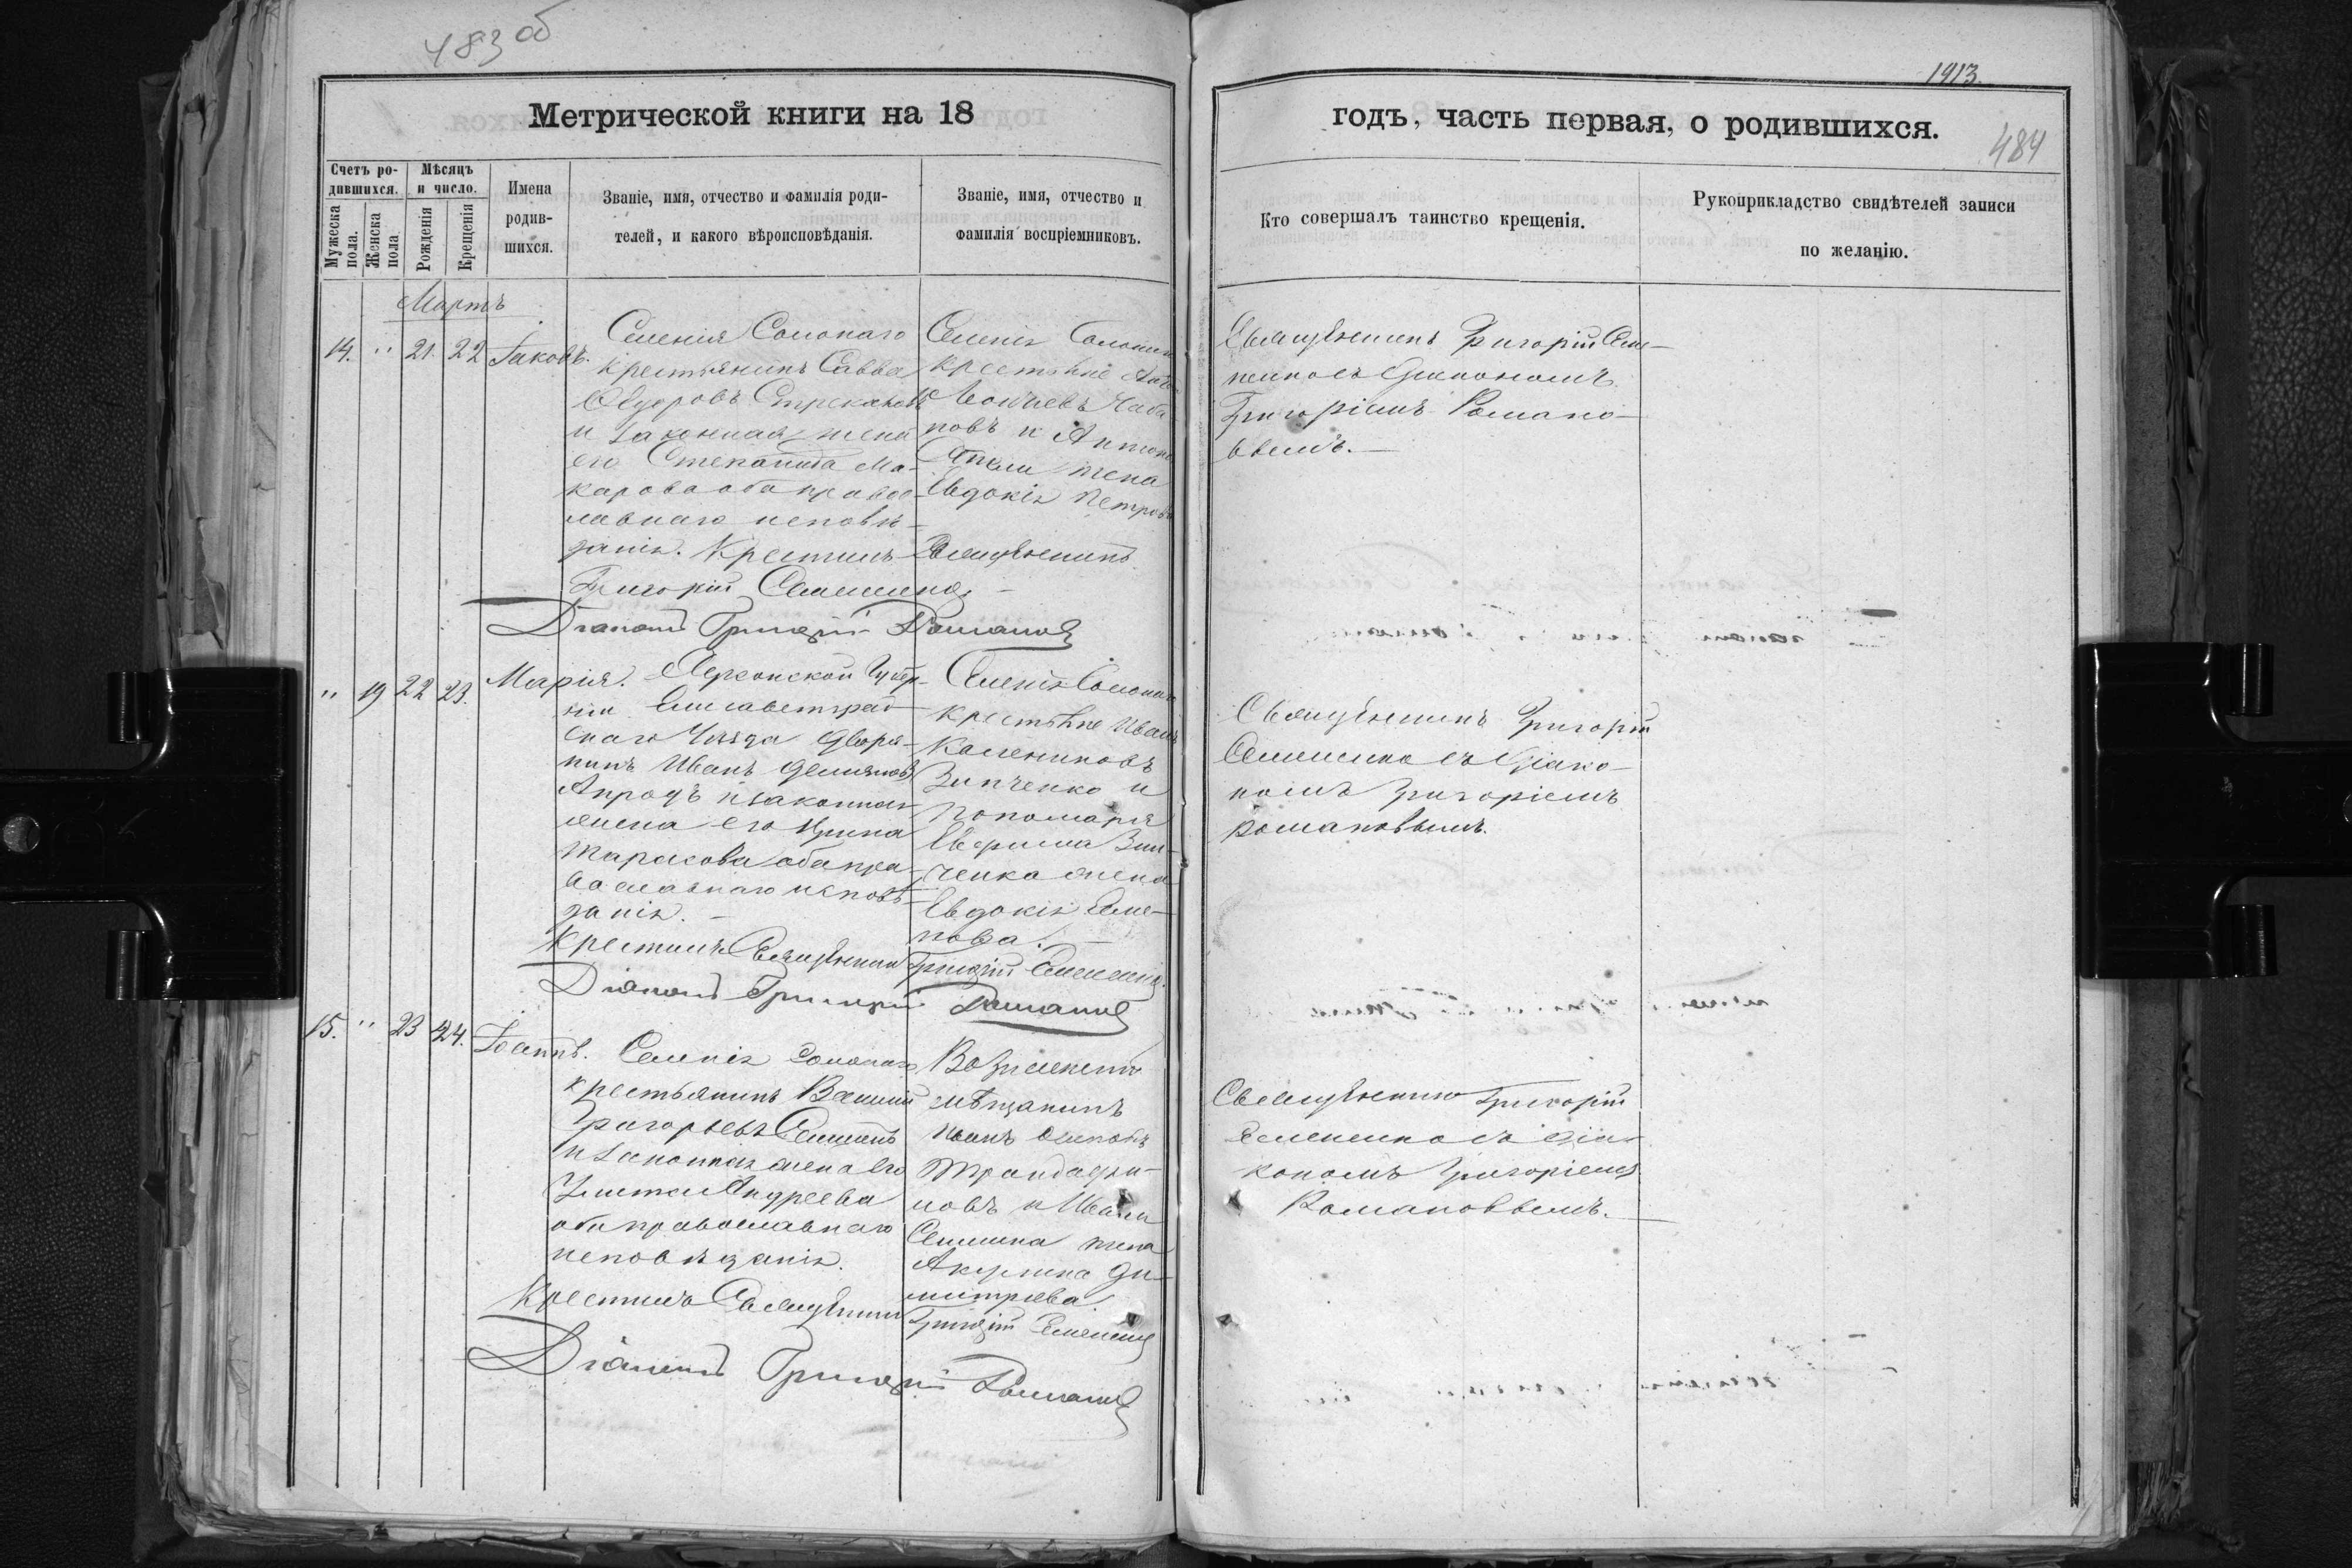 483 об
Метрической книги на 18
Счетъ ро-
дившихся.
Мѣсяцъ
и число.
Мужеска
пола.
Женска
пола
Рожденія
Крещенія
Имена
родив-
шихся.
Званіе, имя, отчество и фамилія роди-
телей, и какого вѣроисповѣданія.
Званіе, имя, отчество и
фамилія воспріемниковъ.
Мартъ
14. " 21. 22 Іаковъ.
Селенія Солонаго
крестьянинъ Савва
Ѳедоровъ
и законная жена
его Степанида Ма-
карова оба правос-
лавнаго исповѣ-
данія. Крестилъ Священникъ
Григорій Семененко
Діаконъ Григорій Романов
Селенія
крестьяне
новъ и
жена
Евдокія Петрова
" 19 22 23. Марія.
Херсонской Губер-
ніи Елисаветград
скаго Уѣзда дворя-
нинъ Иванъ
и законная
жена его Ирина
Тарасова оба пра-
вославнаго исповѣ-
данія. —
Крестилъ Священникъ Григорій Семененко
Діаконъ Григорій Романов
Селенія Солонаго
крестьяне Иванъ
Зинченко и
пономаря
Зин-
ченка жена
Евдокія Семе-
нова. —
15. " 23 24. Іоаннъ.
Селенія Солонаго
крестьянинъ Василій
Григорьевъ
и законная жена его
Андреева
оба православнаго
исповѣданія.
Крестилъ Священникъ Григорій Семененко
Діаконъ Григорій Романов
мѣщанинъ
новъ и Ивана
жена
Ди-
митріева.
1913.
годъ, часть первая, о родившихся.
484
Кто совершалъ таинство крещенія.
Рукоприкладство свидѣтелей записи
по желанію.
Священникъ Григорій Семе-
ненко съ Діакономъ
Григоріемъ Романо-
вымъ. —
Священникъ Григорій
Семененко съ Діако-
номъ Григоріемъ
Романовымъ.
Священникъ Григорій
Семененко съ Діа-
кономъ Григоріемъ
Романовымъ. —